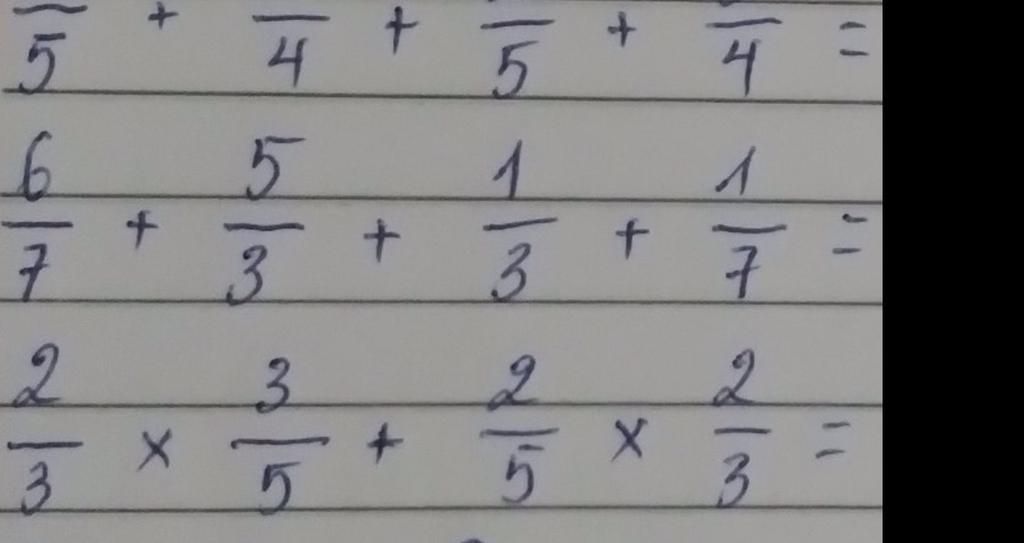 /5 + /4 + /5 + /4 =
6/7 + 5/3 + 1/3 + 1/7 =
2/3 × 3/5 + 2/5 × 2/3 =